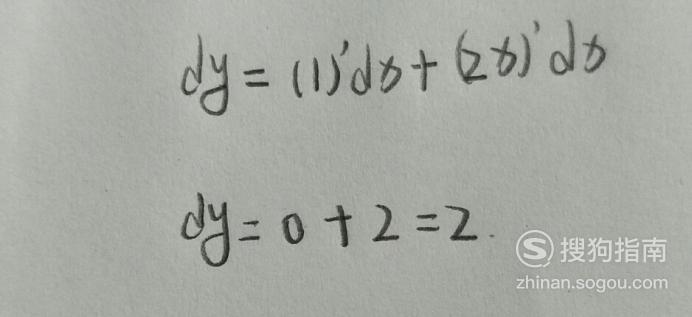 dy = (1)'dx + (2x)'dx
dy = 0 + 2 = 2.
搜狗指南
zhinan.sogou.com